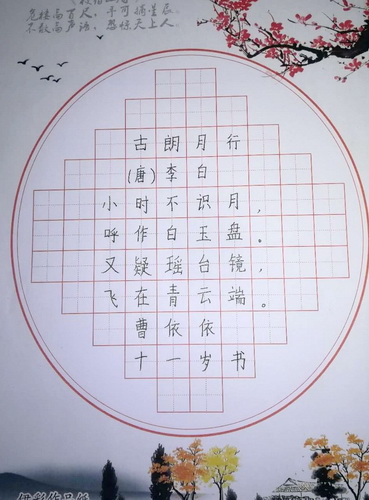 危楼高百尺,手可摘星辰。
不敢高声语,恐惊天上人。
古朗月行
(唐)李白
小时不识月,
呼作白玉盘。
又疑瑶台镜,
飞在青云端。
曹依依
十一岁书